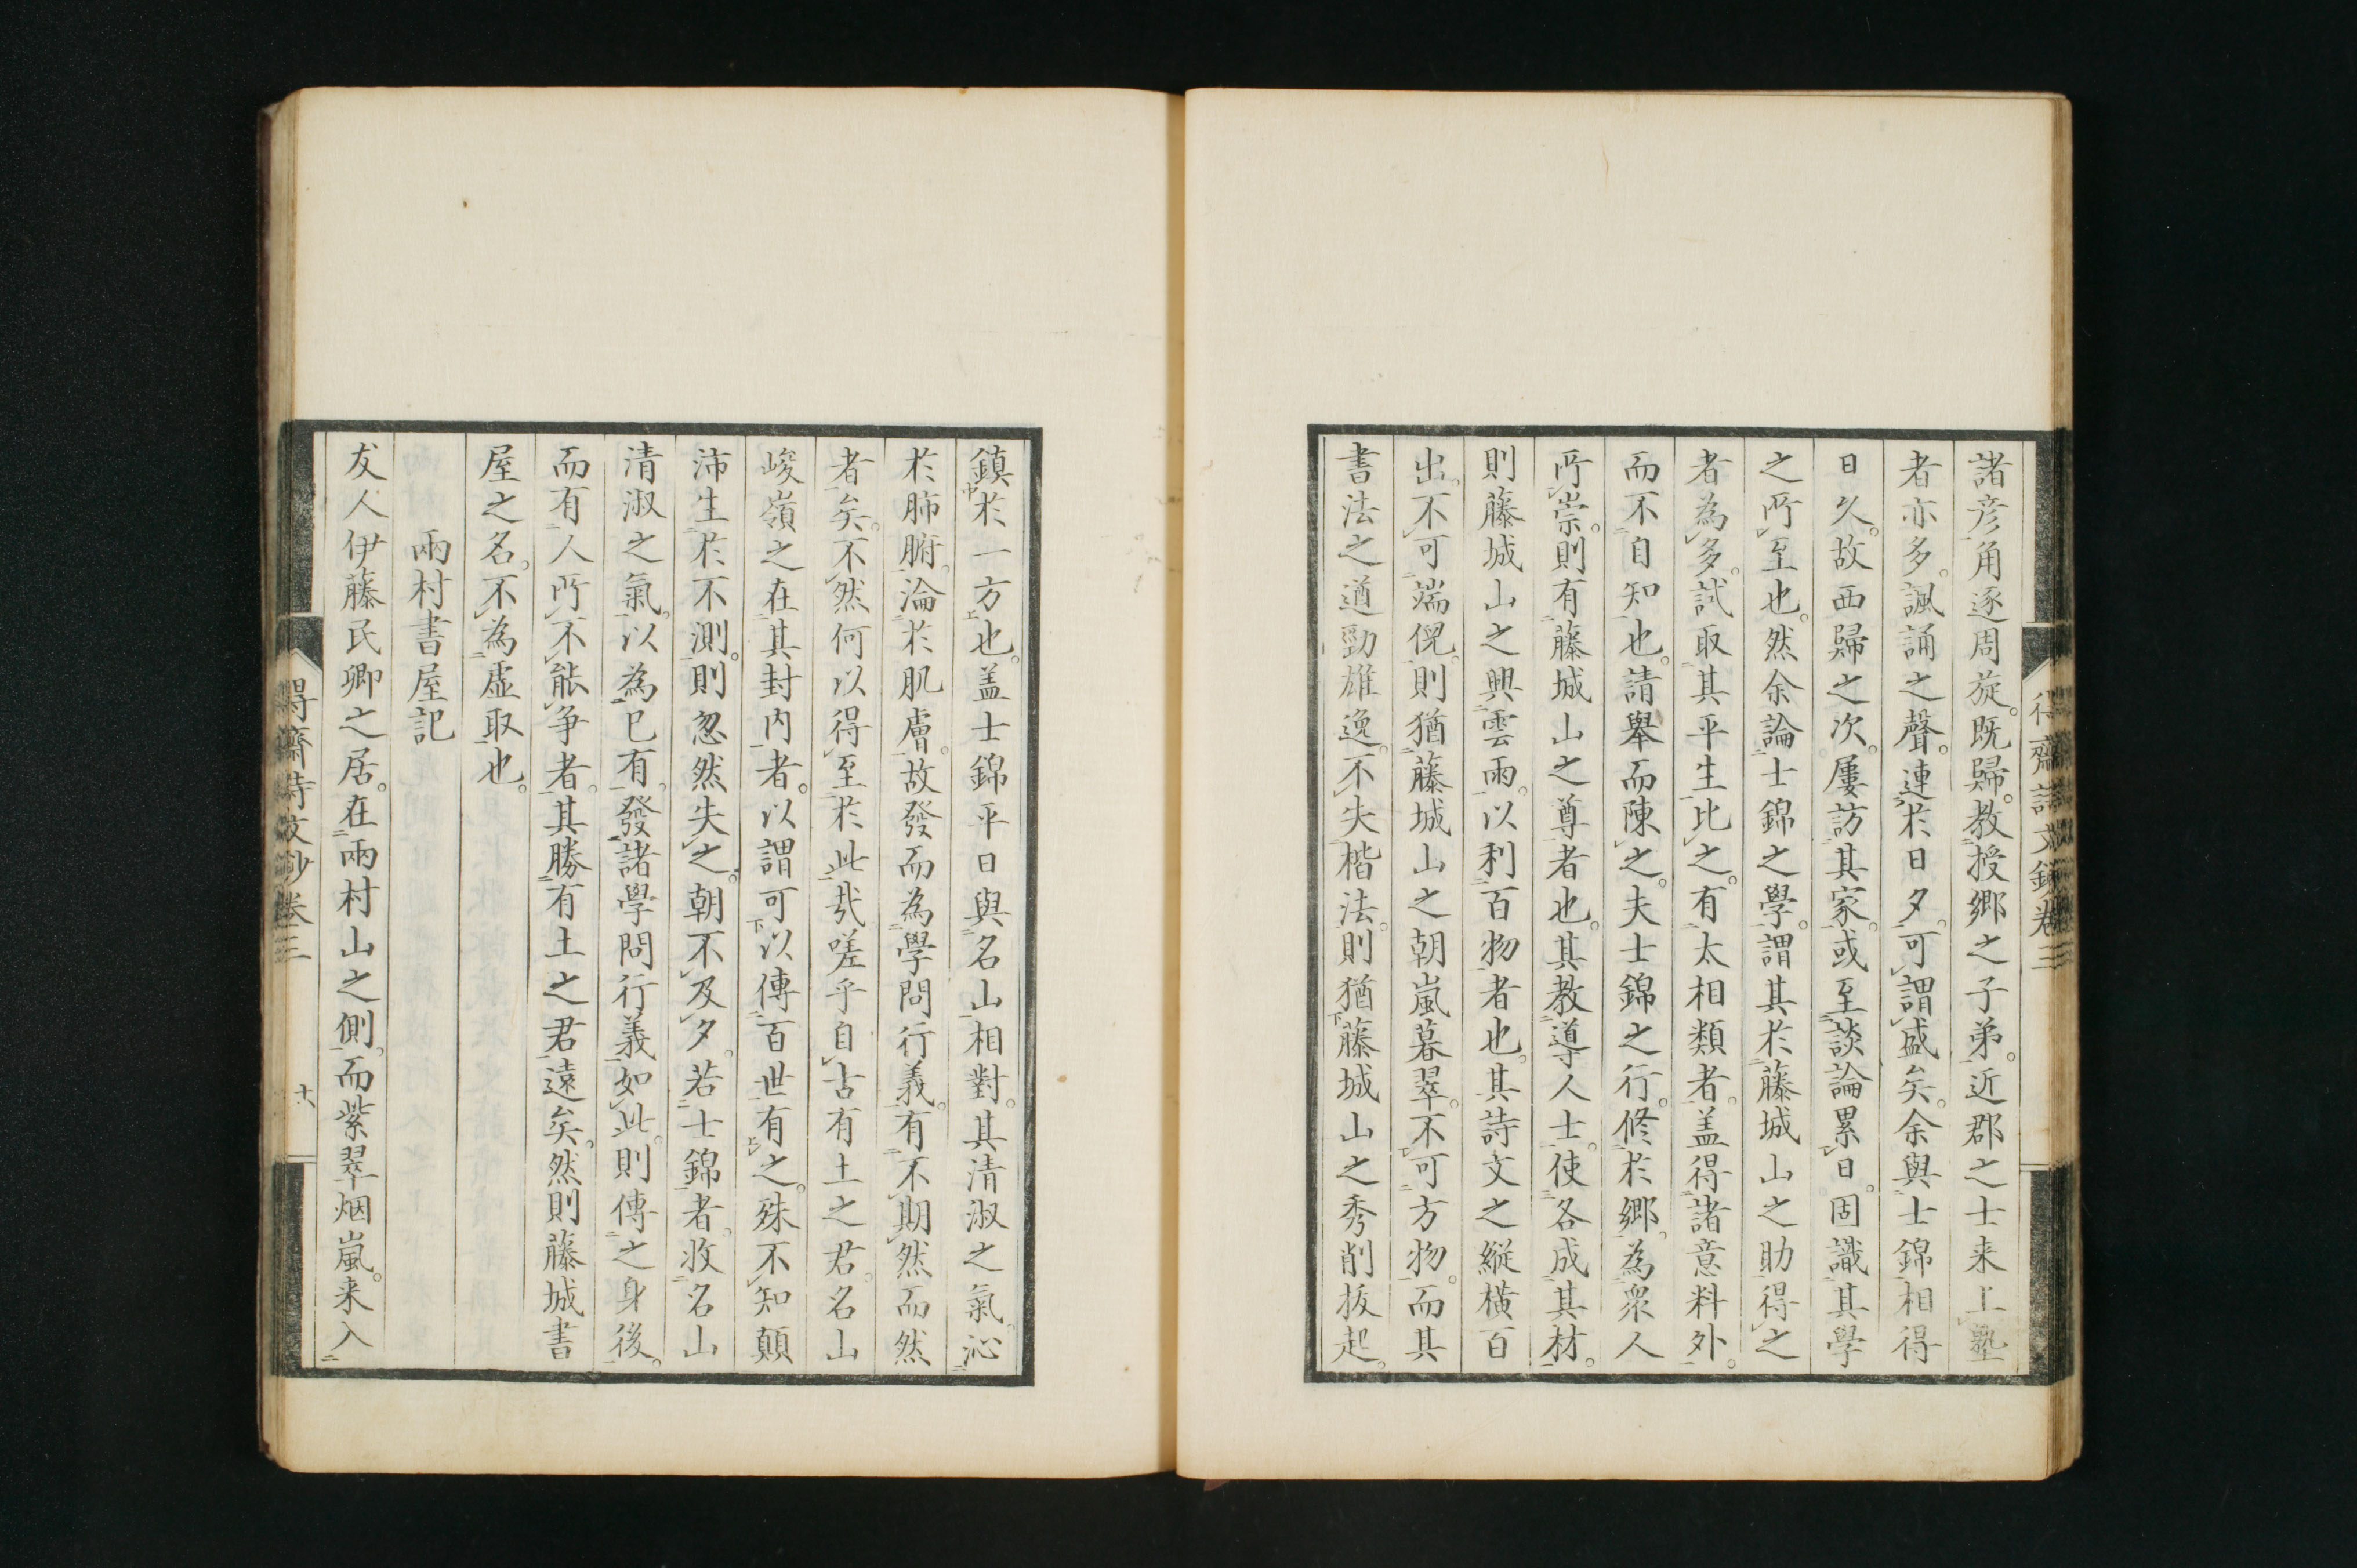 諸彦角逐周旋。既歸。教授郷之子弟。近郡之士来上塾
者亦多。諷誦之聲。連於日夕。可謂盛矣。余與士錦相得
日久。故西歸之次。屢訪其家。或至談論累日。固識其學
之所至也。然余論士錦之學。謂其於藤城山之助得之
者為多。試取其平生比之。有太相類者。盖得諸意料外。
而不自知也。請舉而陳之。夫士錦之行。修於郷。為衆人
所崇。則有藤城山之尊者也。其教導人士。使各成其材。
則藤城山之興雲雨。以利百物者也。其詩文之縦横百
出。不可端倪。則猶藤城山之朝嵐暮翠。不可方物。而其
書法之遒勁雄逸。不失楷法。則猶藤城山之秀削抜起。
得齋詩文鈔卷三
鎮於一方也。盖士錦平日與名山相對。其清淑之氣。沁
於肺腑。淪於肌膚。故發而為學問行義。有不期然而然
者矣。不然何以得至於此哉。嗟乎自古有土之君。名山
峻嶺之在其封内者。以謂可以傳百世有之。殊不知顛
沛生於不測。則忽然失之。朝不及夕。若士錦者。收名山
清淑之氣。以為已有。發諸學問行義如此。則傳之身後。
而有人所不能争者。其勝有土之君遠矣。然則藤城書
屋之名。不為虚取也。
兩村書屋記
友人伊藤民卿之居。在兩村山之側。而紫翠烟嵐。来入
得齋詩文鈔卷三
十八